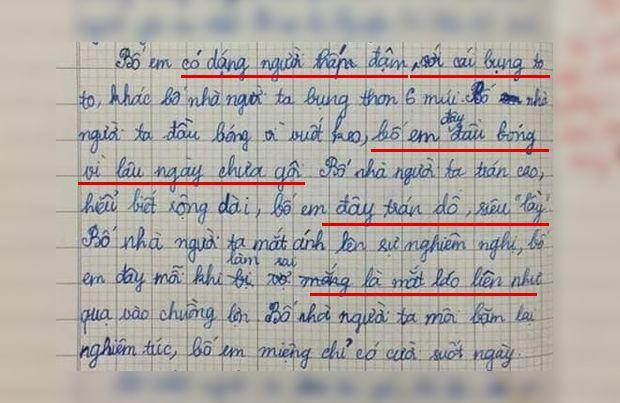 Bố em có dáng người thấp đậm, với cái bụng to
to, khác bố nhà người ta bụng thon 6 múi. Bố nhà
người ta đầu bóng vì vuốt keo, bố em đây đầu bóng
vì lâu ngày chưa gội. Bố nhà người ta trán cao,
hiểu biết rộng dài, bố em đây trán dô, siêu "lầy".
Bố nhà người ta mắt ánh lên sự nghiêm nghị, bố
em đây mỗi khi làm sai mắng là mắt láo liên như
qua vào chuồng lợn. Bố nhà người ta môi bặm lại
nghiêm túc, bố em miệng chỉ có cười suốt ngày.